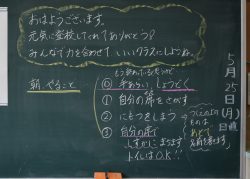 おはようございます。
元気に登校してくれてありがとう!
みんなで力を合わせて いいクラスにしようね。
朝、やること
もう終わっているものが
⓪ 手あらい、しょうどく
① 自分の席をさがす
② にもつをしまう
③ 自分の席で
しずかにまちます
トイレはO.K!!
ものは
あとで
名前を書きます。
5月25日(月)
日直